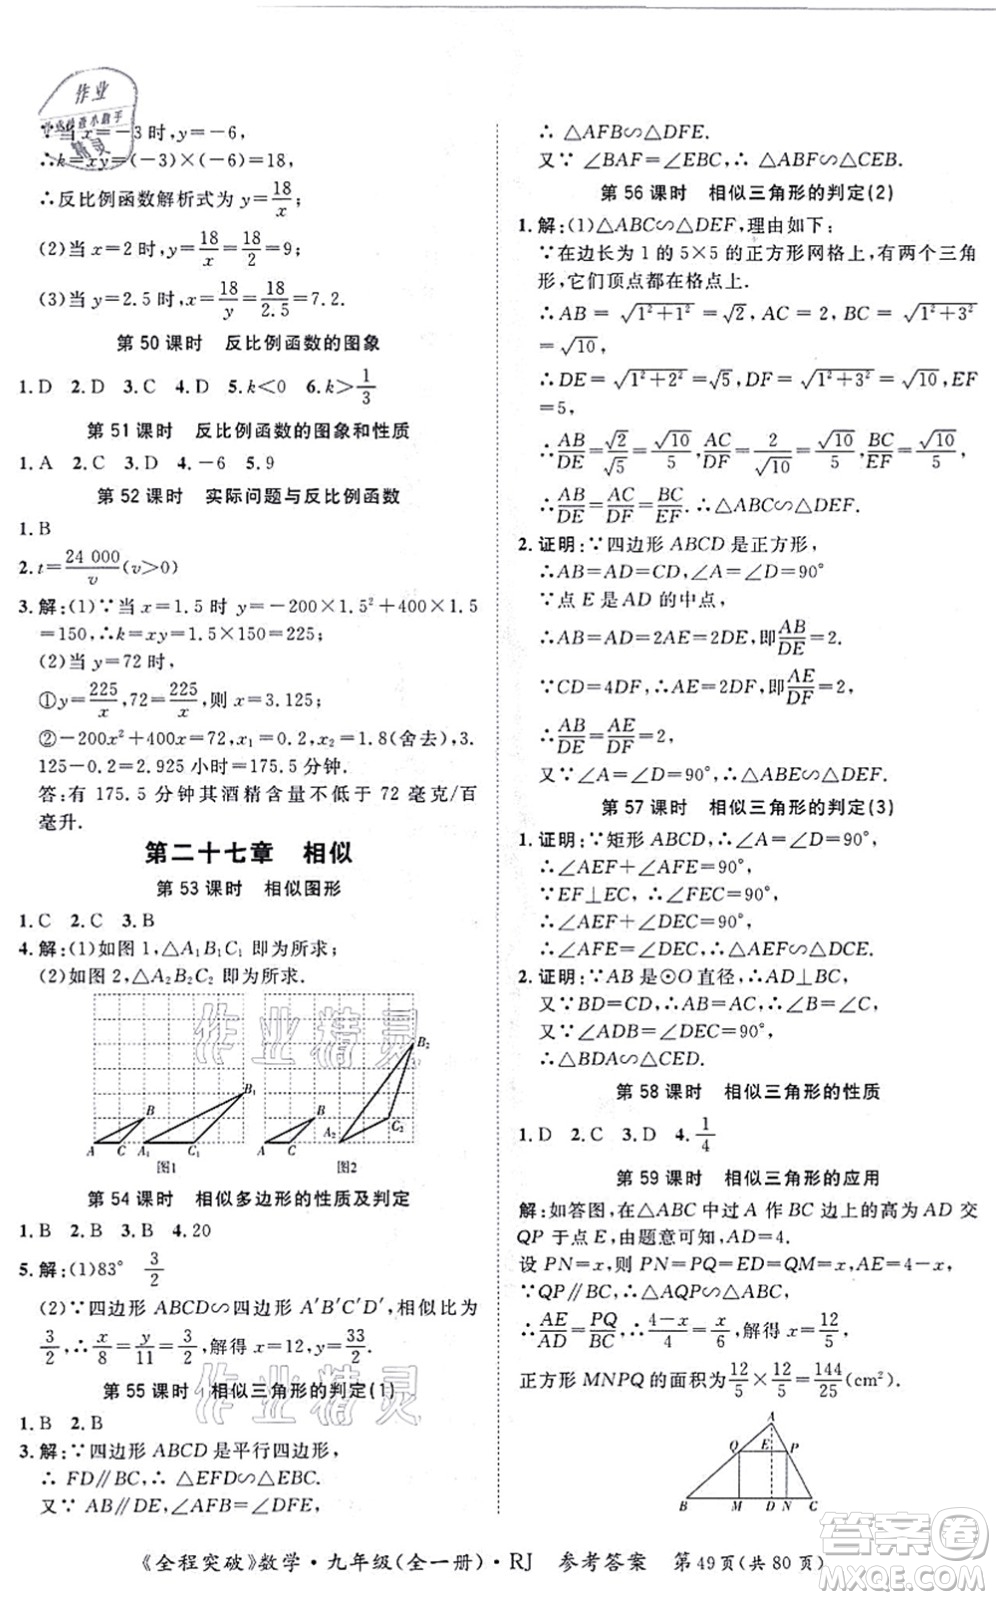 作业
作业检查小助手
精灵
∵当 x=-3 时, y=-6,
∴k=xy=(-3)×(-6)=18,
∴反比例函数解析式为 y=18/x;
(2)当 x=2 时, y=18/x=18/2=9;
(3)当 y=2.5 时, x=18/y=18/2.5=7.2.
第 50 课时 反比例函数的图象
1. D 2. D 3. C 4. D 5. k<0 6. k>1/3
第 51 课时 反比例函数的图象和性质
1. A 2. C 3. D 4. -6 5. 9
第 52 课时 实际问题与反比例函数
1. B
2. t=24 000/v(v>0)
3. 解:(1)∵当 x=1.5 时 y=-200×1.5²+400×1.5
=150,∴k=xy=1.5×150=225;
(2)当 y=72 时,
①y=225/x,72=225/x,则 x=3.125;
②-200x²+400x=72,x₁=0.2,x₂=1.8(舍去),3.
125-0.2=2.925 小时=175.5 分钟.
答:有 175.5 分钟其酒精含量不低于 72 毫克/百
毫升.
第二十七章 相似
第 53 课时 相似图形
1. C 2. C 3. B
4. 解:(1)如图 1,△A₁B₁C₁ 即为所求;
(2)如图 2,△A₂B₂C₂ 即为所求.
作业精灵
B₂
B₁
B B
C₂
A C A₁ C₁ A C A₂
图1 图2
第 54 课时 相似多边形的性质及判定
1. B 2. B 3. A 4. 20
5. 解:(1)83° 3/2
(2)∵四边形 ABCD∽四边形 A′B′C′D′,相似比为
3/2,∴x/8=y/11=3/2,解得 x=12,y=33/2.
作业精灵
第 55 课时 相似三角形的判定(1)
1. B 2. B
3. 解:∵四边形 ABCD 是平行四边形,
∴ FD∥BC,∴ △AFB∽△DFE,
又∵ AB∥DE,∠AFB=∠DFE,
∴ △AFB∽△DFE.
又∵ ∠BAF=∠EBC,∴ △ABF∽△CEB.
第 56 课时 相似三角形的判定(2)
1. 解:(1)△ABC∽△DEF,理由如下:
∵在边长为 1 的 5×5 的正方形网格上,有两个三角
形,它们顶点都在格点上.
∴AB = √(1²+1²) = √2, AC = 2, BC = √(1²+3²)
= √10,
∴DE=√(1²+2²)=√5,DF=√(1²+3²)=√10,EF
=5,
∴AB/DE=√2/√5=√10/5,AC/DF=2/√10=√10/5,BC/EF=√10/5,
∴AB/DE=AC/DF=BC/EF.∴△ABC∽△DEF.
2. 证明:∵四边形 ABCD 是正方形,
∴AB=AD=CD,∠A=∠D=90°
∵点 E 是 AD 的中点,
∴AB=AD=2AE=2DE,即AB/DE=2,
∵CD=4DF,∴DE=2DF,即AE/DF=2,
∴AB/DE=AE/DF=2,
又∵∠A=∠D=90°,∴△ABE∽△DEF.
第 57 课时 相似三角形的判定(3)
1. 证明:∵矩形 ABCD,∴∠A=∠D=90°,
∴∠AEF+∠AFE=90°,
∵EF⊥EC, ∴∠FEC=90°,
∴∠AEF+∠DEC=90°,
∴∠AFE=∠DEC,∴△AEF∽△DCE.
2. 证明:∵AB 是⊙O 直径,∴AD⊥BC,
又∵BD=CD,∴AB=AC,∴∠B=∠C,
又∵∠ADB=∠DEC=90°,
∴△BDA∽△CED.
第 58 课时 相似三角形的性质
1. D 2. C 3. D 4. 1/4
第 59 课时 相似三角形的应用
解:如答图,在△ABC 中过 A 作 BC 边上的高为 AD 交
QP 于点 E,由题意可知,AD=4.
设 PN=x,则 PN=PQ=ED=QM=x,AE=4-x,
∵QP∥BC,∴△APQ∽△ABC,
∴AE/AD=PQ/BC,∴(4-x)/4=x/6,解得 x=12/5,
正方形 MNPQ 的面积为12/5×12/5=144/25(cm²).
A
Q E P
B M D N C
《全程突破》数学·九年级(全一册)·RJ 参考答案 第49页(共 80 页)
作业精灵